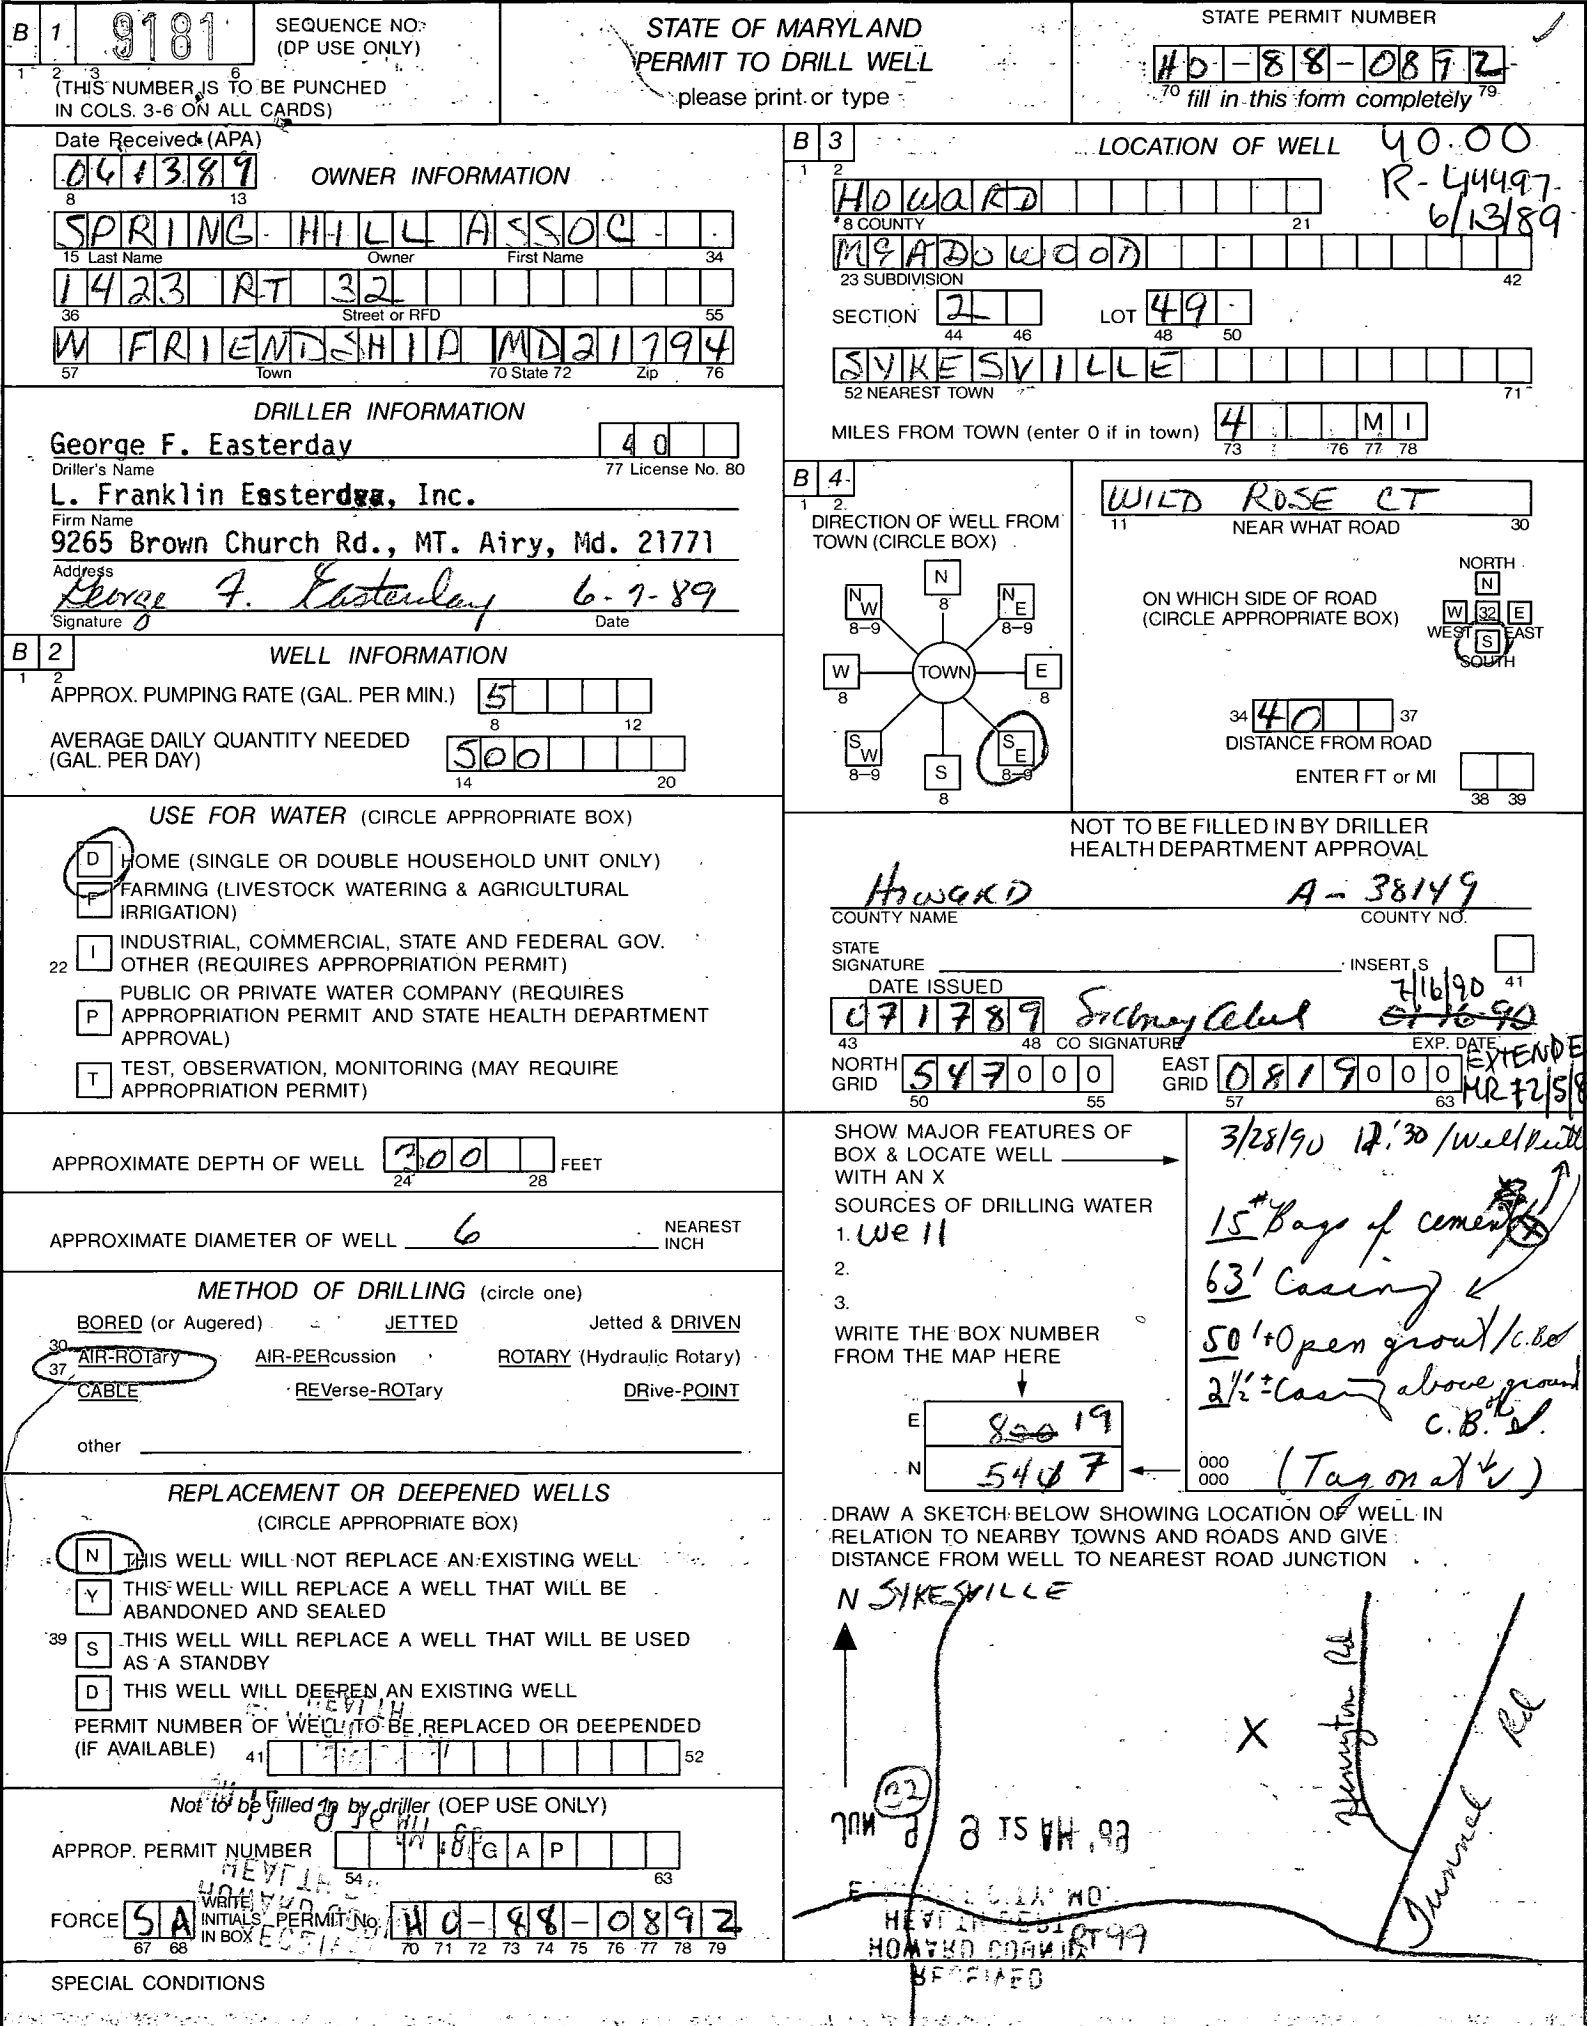 B 1 9181 SEQUENCE NO. (DP USE ONLY)
1 2 3 6
(THIS NUMBER IS TO BE PUNCHED
IN COLS. 3-6 ON ALL CARDS)
STATE OF MARYLAND
PERMIT TO DRILL WELL
please print or type
STATE PERMIT NUMBER
HO-88-0892
70 fill in this form completely 79
Date Received (APA)
061389
8 13
OWNER INFORMATION
SPRING HILL ASSOC
15 Last Name Owner First Name 34
1423 RT 32
36 Street or RFD 55
W FRIENDSHIP MD 21794
57 Town 70 State 72 Zip 76
DRILLER INFORMATION
George F. Easterday 40
Driller's Name 77 License No. 80
L. Franklin Easterday, Inc.
Firm Name
9265 Brown Church Rd., MT. Airy, Md. 21771
Address
George F. Easterday 6-7-89
Signature Date
B 2 WELL INFORMATION
1 2
APPROX. PUMPING RATE (GAL. PER MIN.) 5
8 12
AVERAGE DAILY QUANTITY NEEDED
(GAL. PER DAY) 500
14 20
USE FOR WATER (CIRCLE APPROPRIATE BOX)
D HOME (SINGLE OR DOUBLE HOUSEHOLD UNIT ONLY)
F FARMING (LIVESTOCK WATERING & AGRICULTURAL
IRRIGATION)
22 I INDUSTRIAL, COMMERCIAL, STATE AND FEDERAL GOV.
OTHER (REQUIRES APPROPRIATION PERMIT)
P PUBLIC OR PRIVATE WATER COMPANY (REQUIRES
APPROPRIATION PERMIT AND STATE HEALTH DEPARTMENT
APPROVAL)
T TEST, OBSERVATION, MONITORING (MAY REQUIRE
APPROPRIATION PERMIT)
APPROXIMATE DEPTH OF WELL 200 FEET
24 28
APPROXIMATE DIAMETER OF WELL 6 NEAREST
INCH
METHOD OF DRILLING (circle one)
BORED (or Augered) JETTED Jetted & DRIVEN
30
37 AIR-ROTary AIR-PERcussion ROTARY (Hydraulic Rotary)
CABLE REVerse-ROTary DRive-POINT
other
REPLACEMENT OR DEEPENED WELLS
(CIRCLE APPROPRIATE BOX)
N THIS WELL WILL NOT REPLACE AN EXISTING WELL
Y THIS WELL WILL REPLACE A WELL THAT WILL BE
ABANDONED AND SEALED
39 S THIS WELL WILL REPLACE A WELL THAT WILL BE USED
AS A STANDBY
D THIS WELL WILL DEEPEN AN EXISTING WELL
PERMIT NUMBER OF WELL TO BE REPLACED OR DEEPENDED
(IF AVAILABLE) 41 52
Not to be filled in by driller (OEP USE ONLY)
APPROP. PERMIT NUMBER GAP
54 63
FORCE SA WRITE INITIALS IN BOX PERMIT No. HO-88-0892
67 68 70 71 72 73 74 75 76 77 78 79
SPECIAL CONDITIONS
B 3 LOCATION OF WELL 40.00
1 2
R-44497
6/13/89
HOWARD
8 COUNTY 21
MEADOWOOD
23 SUBDIVISION 42
SECTION 2 LOT 49
44 46 48 50
SYKESVILLE
52 NEAREST TOWN 71
MILES FROM TOWN (enter 0 if in town) 4 MI
73 76 77 78
B 4
1 2
DIRECTION OF WELL FROM
TOWN (CIRCLE BOX)
N
8
NW NE
8-9 8-9
W TOWN E
8 8
SW SE
8-9 8-9
S
8
WILD ROSE CT
11 NEAR WHAT ROAD 30
ON WHICH SIDE OF ROAD
(CIRCLE APPROPRIATE BOX)
NORTH
N
W 32 E
WEST S EAST
SOUTH
34 40 37
DISTANCE FROM ROAD
ENTER FT or MI
38 39
NOT TO BE FILLED IN BY DRILLER
HEALTH DEPARTMENT APPROVAL
HOWARD A-38149
COUNTY NAME COUNTY NO.
STATE
SIGNATURE INSERT S
41
DATE ISSUED 7/16/90
071789 01-16-90
43 48 CO SIGNATURE EXP. DATE
EXTENDE
NORTH GRID 547000 EAST GRID 0819000
50 55 57 63
SHOW MAJOR FEATURES OF
BOX & LOCATE WELL
WITH AN X
SOURCES OF DRILLING WATER
1. Well
2.
3.
WRITE THE BOX NUMBER
FROM THE MAP HERE
E 800 19
N 544 7
000
000
3/28/90
15 Bags of cement
63' Casing
50'+ Open grout
2 1/2' ± Casing above ground
C.B.
(Tag on
DRAW A SKETCH BELOW SHOWING LOCATION OF WELL IN
RELATION TO NEARBY TOWNS AND ROADS AND GIVE
DISTANCE FROM WELL TO NEAREST ROAD JUNCTION
N SYKESVILLE
Henryton Rd
X
32
Tunnel Rd
JUN 9 9 15 AM '89
HEALTH DEPT
HOWARD COUNTY
RECEIVED
RT 99